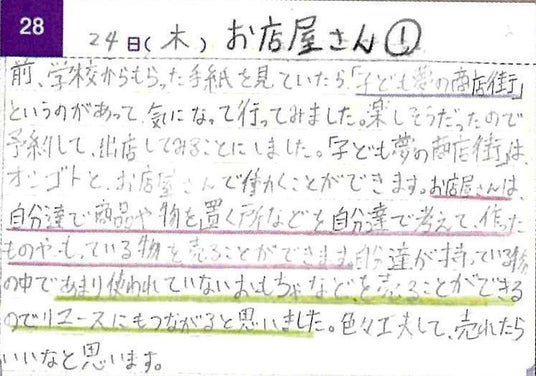 28
24日(木) お店屋さん①
前、学校からもらった手紙を見ていたら「子ども夢の商店街」
というのがあって、気になって行ってみました。楽しそうだったので
予約して、出店してみることにしました。「子ども夢の商店街」は、
オシゴトと、お店屋さんで働くことができます。お店屋さんは、
自分達で商品や物を置く所などを自分達で考えて、作った
ものや、もっている物を売ることができます。自分達が持っている物
の中であまり使われていないおもちゃなどを売ることができる
のでリユースにもつながると思いました。色々工夫して、売れたら
いいなと思います。